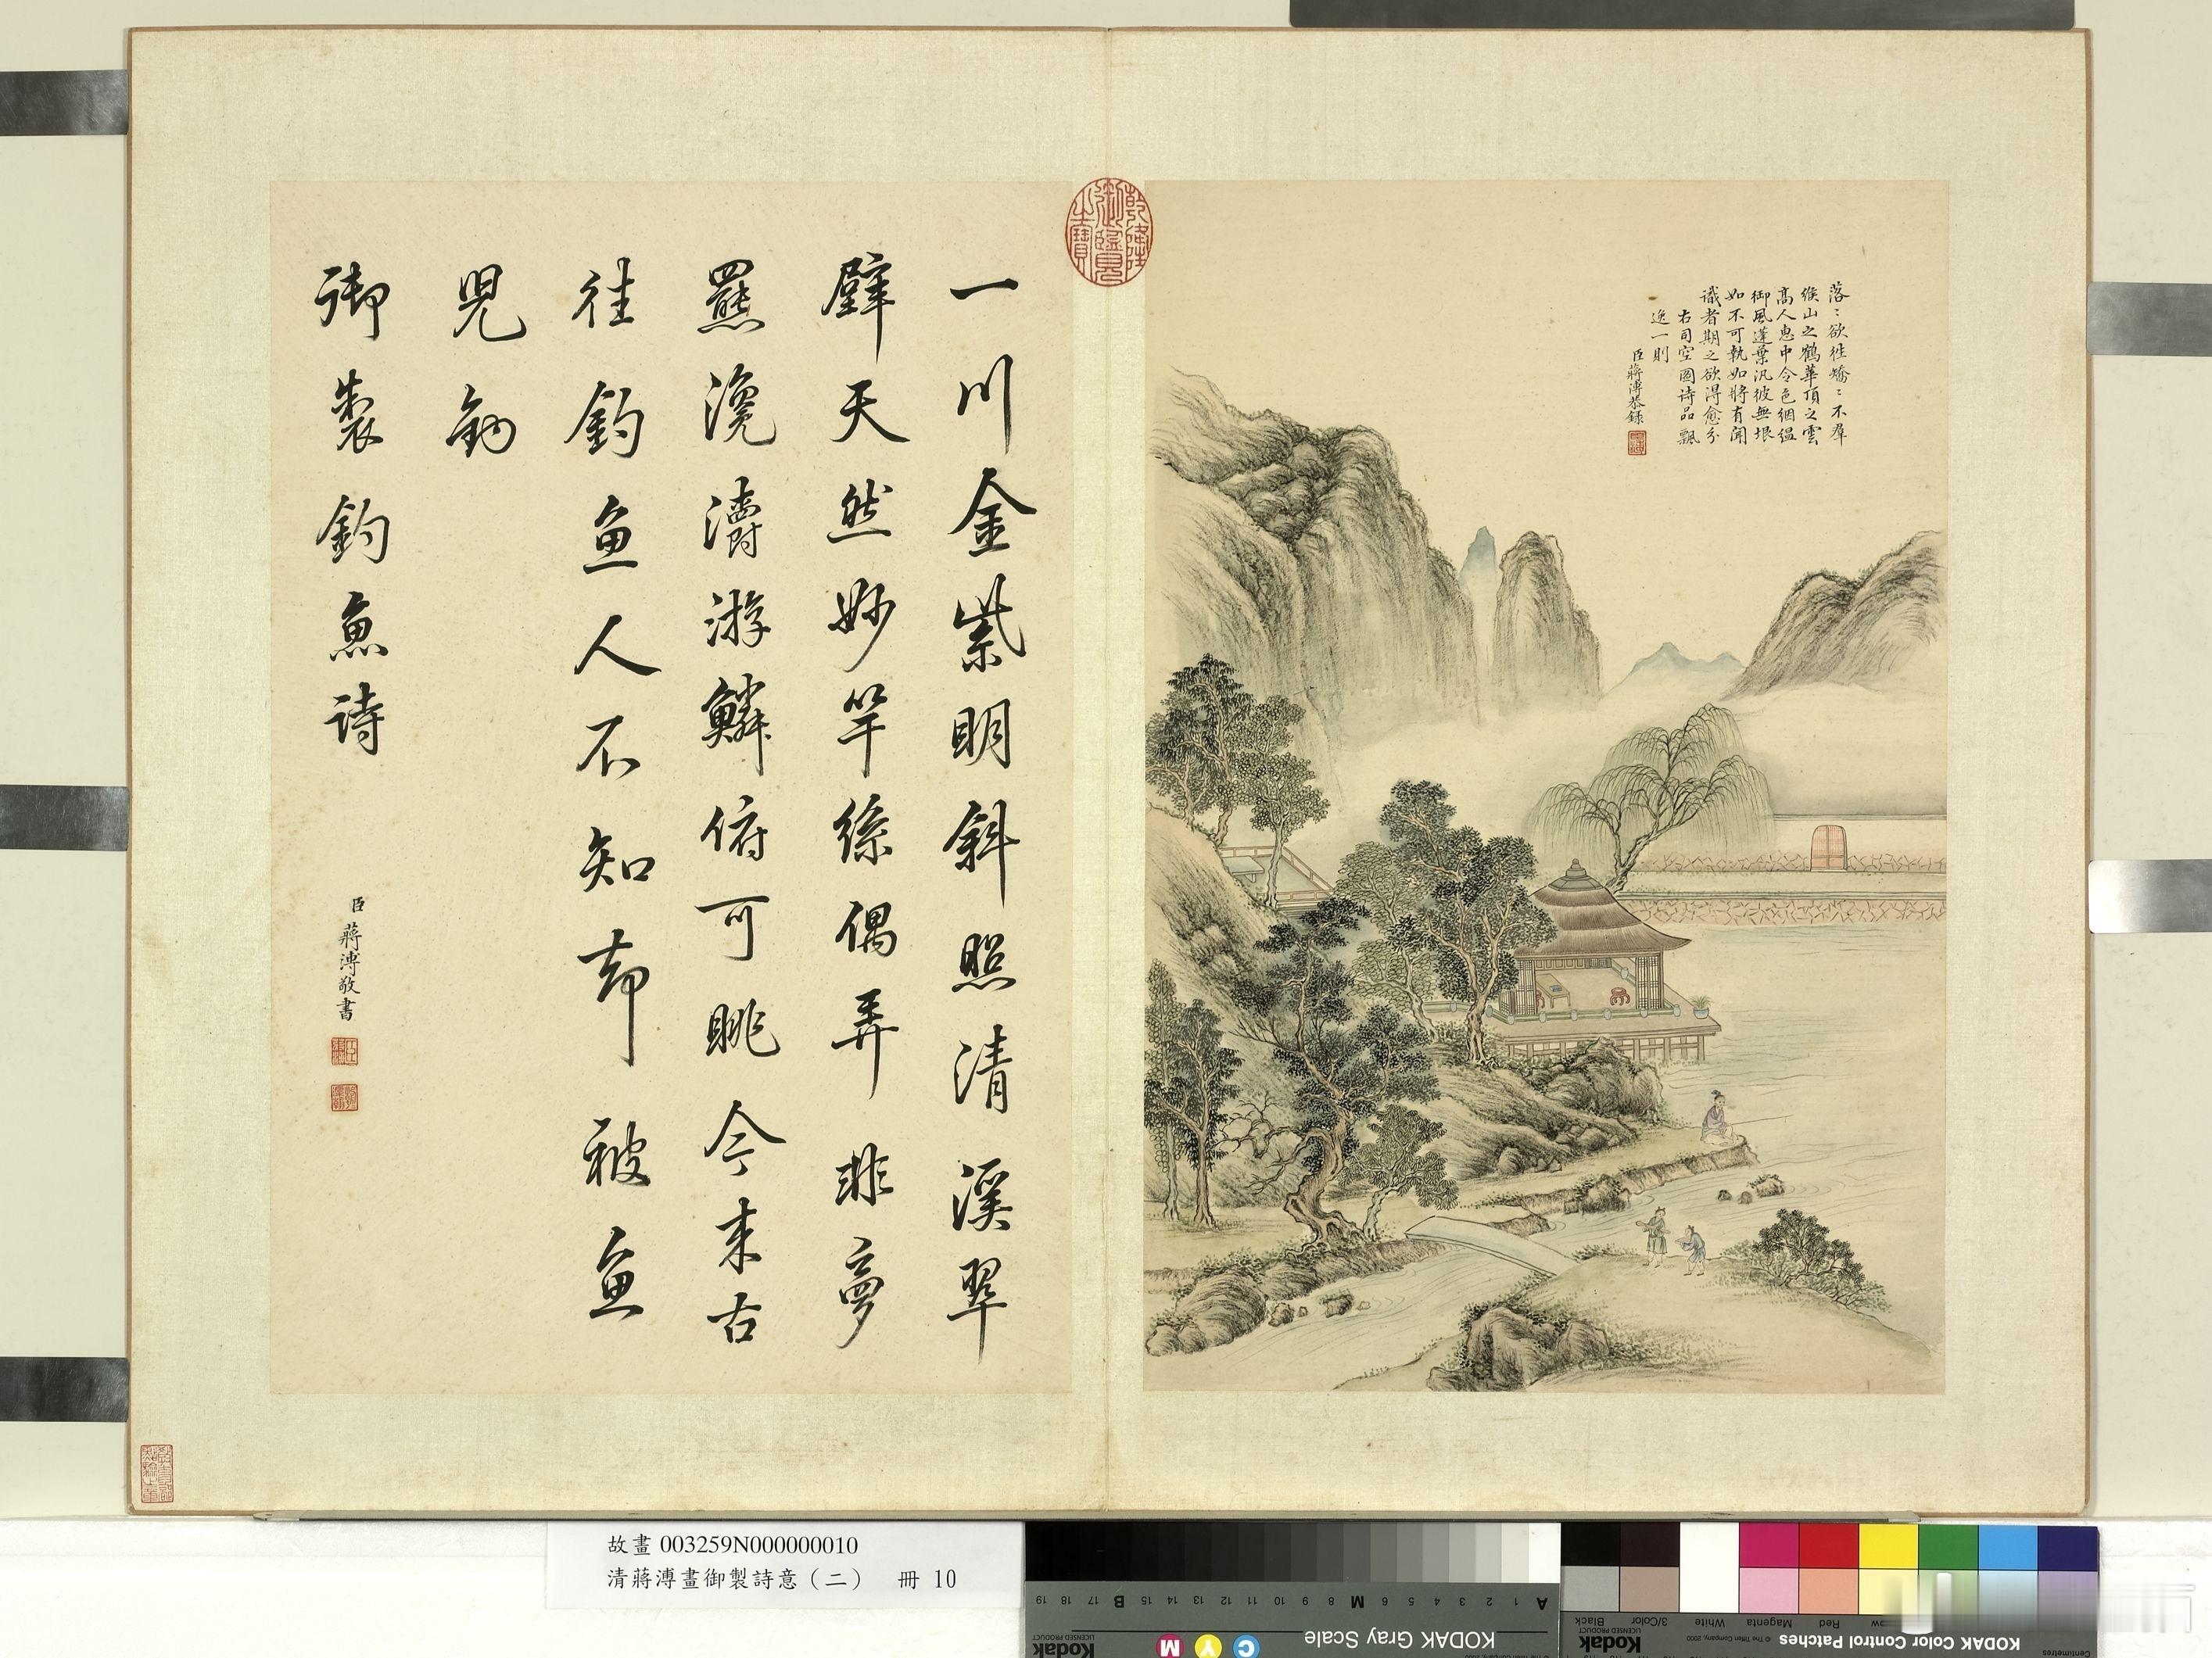 落〻欲往矯〻不羣
緱山之鶴華頂之雲
高人惠中令色絪緼
御風蓬葉汎彼無垠
如不可執如將有聞
識者期之欲得愈分
右司空圖诗品飄
逸一則
臣蔣溥恭錄
乾隆御覽之寶
一川金紫明斜照清溪翠
壁天然妙竿絲偶弄非夢
羆瀺灂游鱗俯可眺今来古
往釣魚人不知却被魚
兒釣
御製釣魚诗
臣蔣溥敬書
故畫 003259N000000010
清蔣溥畫御製詩意（二） 冊 10
KODAK Gray Scale
Kodak
LICENSED PRODUCT
C Y M
A 1 2 3 4 5 6 M 8 9 10 11 12 13 14 15 B 17 18 19
KODAK Color Control Patches
Kodak
LICENSED PRODUCT
© The Tiffen Company, 2000
Centimetres
Red Magenta White 3/Color Black